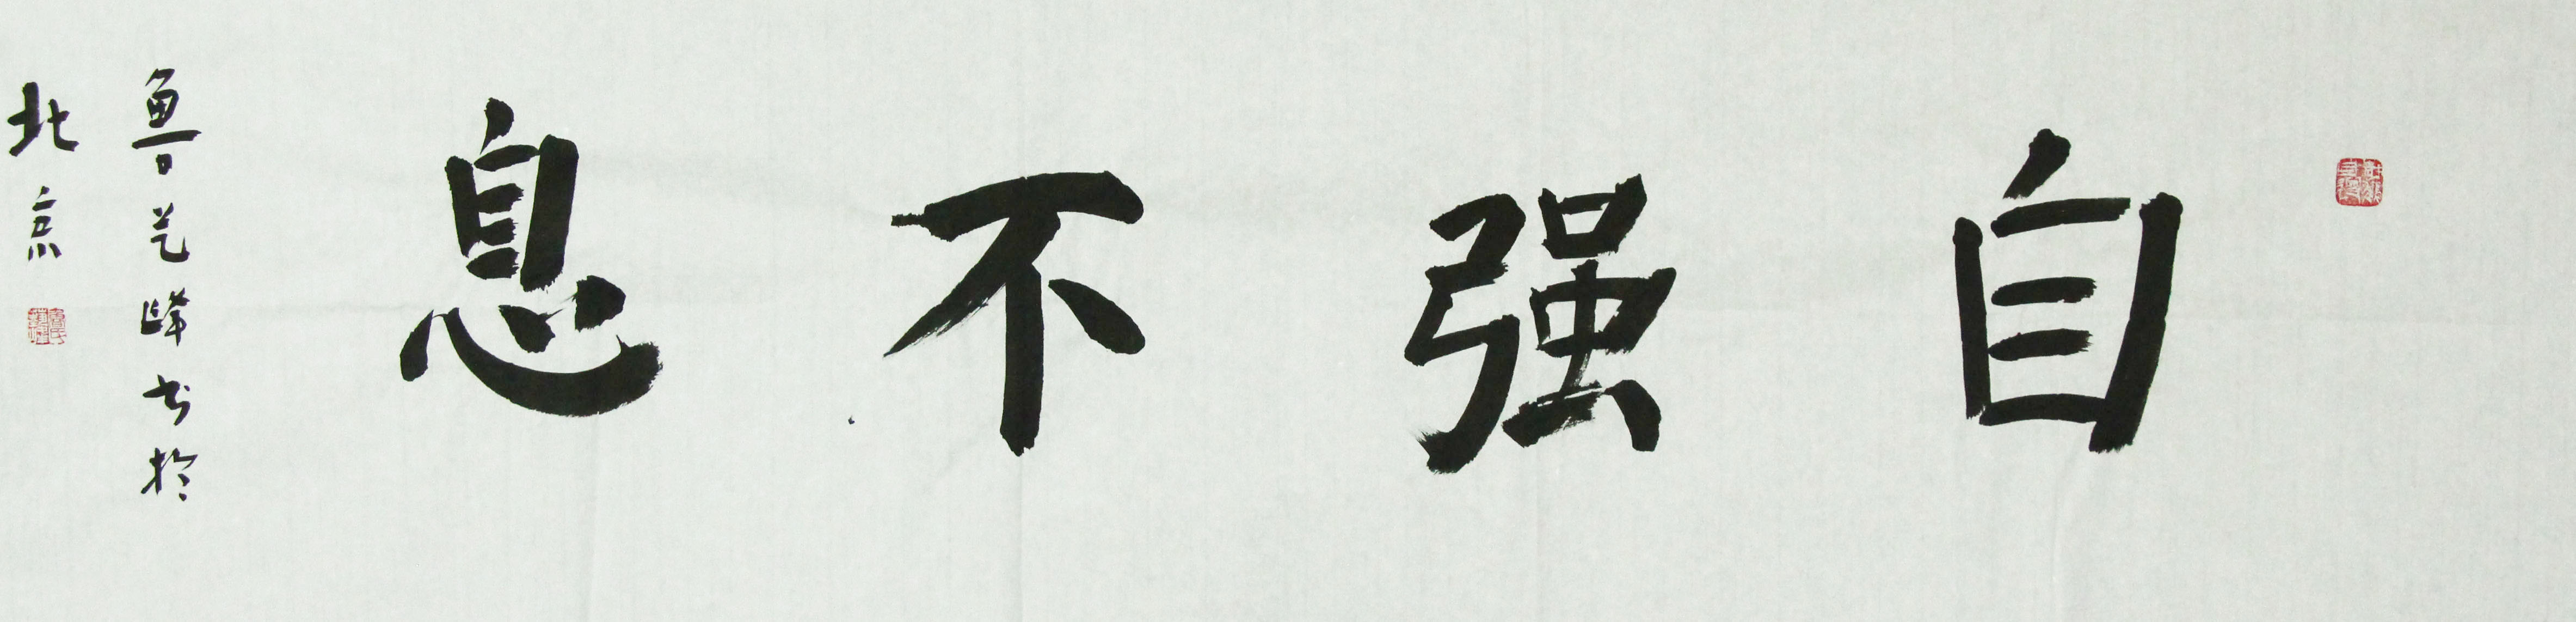 自强不息
鲁艺峰书於
北京